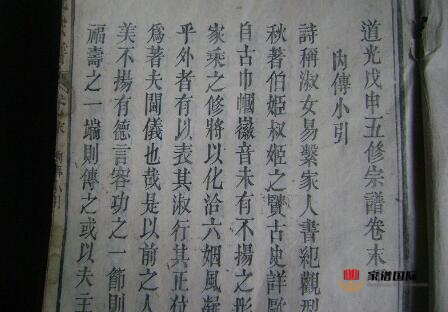 道光戊申五修宗譜卷末
內傳小引
詩稱淑女易繫家人書紀觀型
秋著伯姬叔姬之賢古史詳歐
自古巾幗徽音未有不揚之彤
家乘之修將以化洽六姻風凝
乎外者有以表其淑行其正位
為著夫閫儀也哉是以前之人
美不揚有德言容功之一節則
福壽之一端則傳之或以夫王
小引
家谱国际